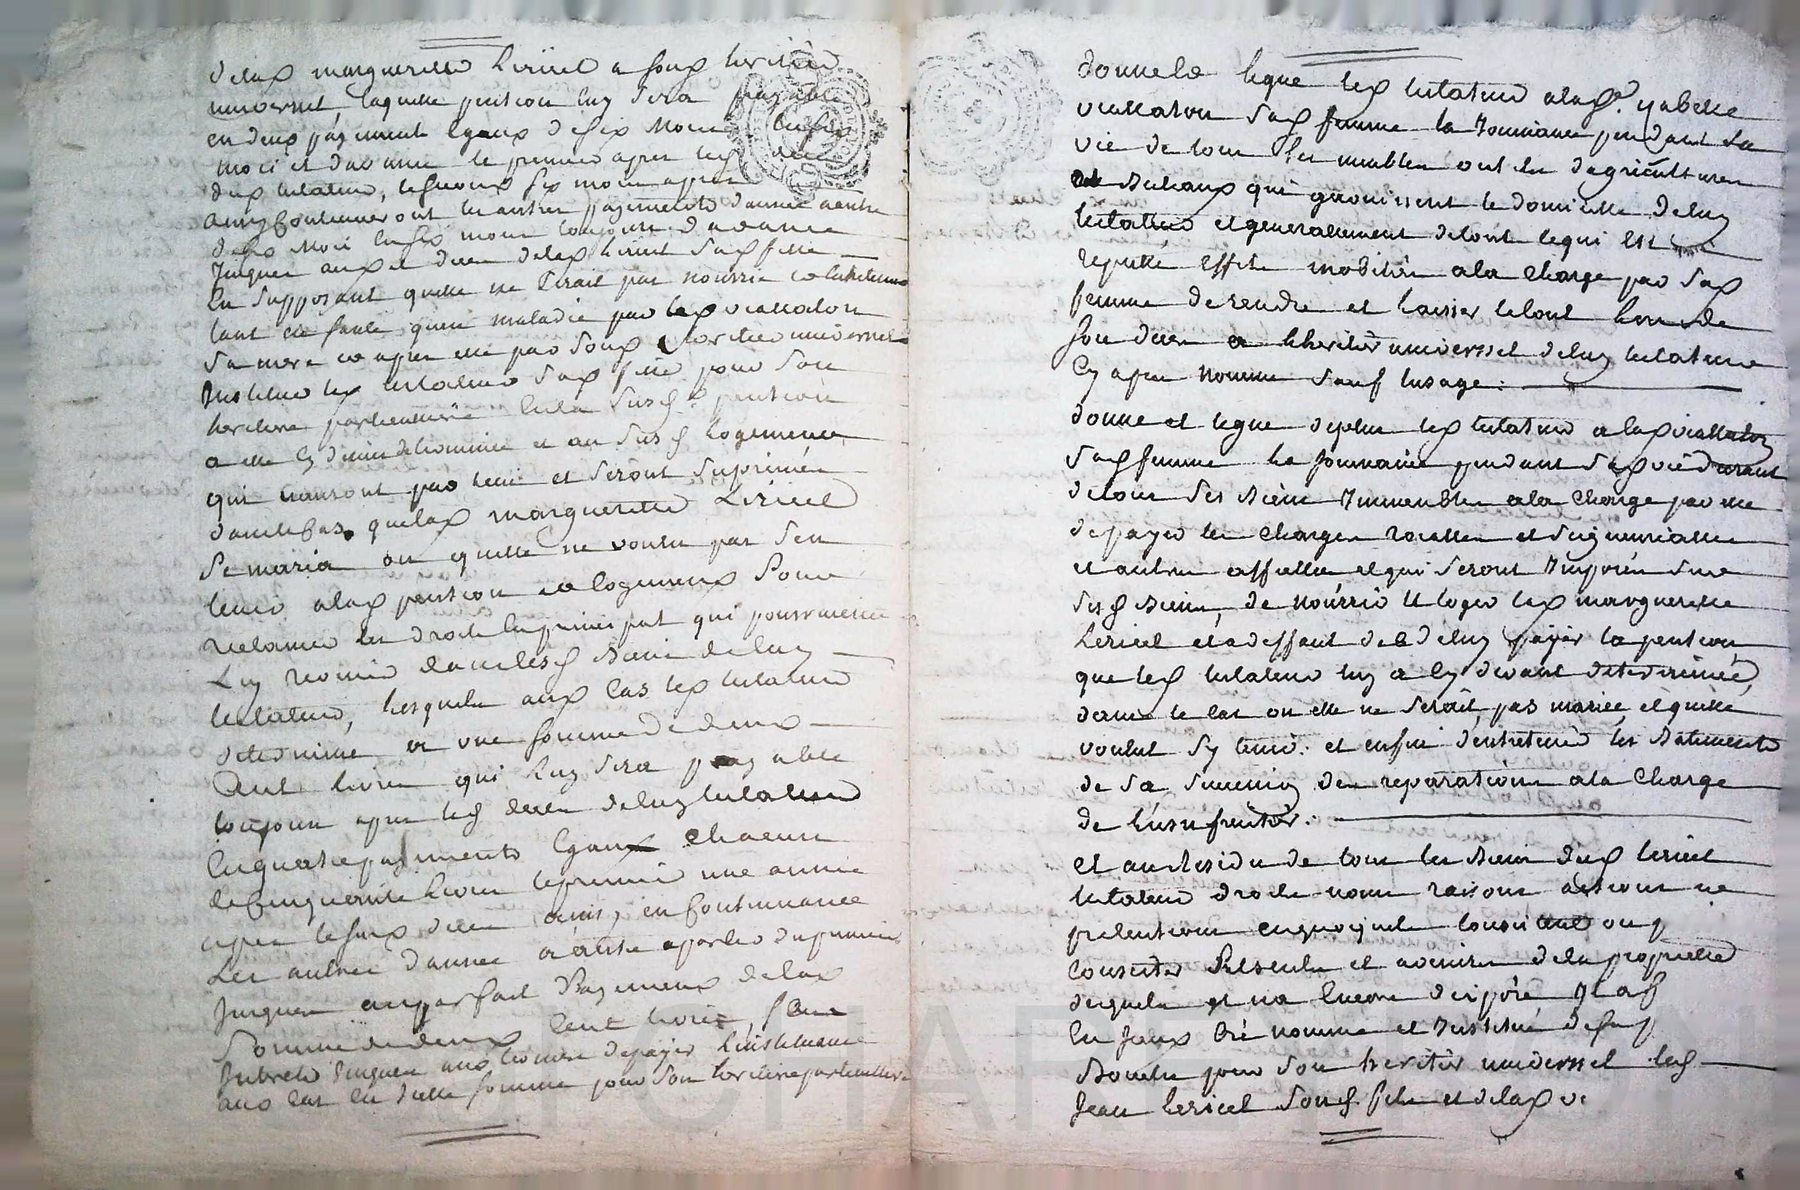 delad margueritte Leriiel a soud heritier
universel, laquelle pention luy sera payable
en deux payements egaux de six mois en six
mois et davance le premier apres led deces
dud testateur, le second six mois apres
ainsy continueront les autres payements dannée a autre
de six mois en six mois toujours davance
jusques aux deces delad Leriiel sad fille
en supposant quelle ne serait pas nourrie et entretenue
tant en santé quen maladie par lad viallaton
sa mere et apres elle par soud heritier universel
Institue led testateur sad fille pour son
heritiere particulliere en la susd pention
a elle cy dessus determinée et au susd logement
qui nauront pas lieu et seront suprimés
dans le cas que lad marguerette Leriiel
se maria ou quelle ne voulu pas sen
tenir a lad pention et logement pour
reclamer les droits en principal qui pourroient
luy revenir dans lesd biens de luy
testateur, lesquels aux cas led testateur
determine a une somme de deux
Cent livres qui luy sera payable
toujours apres led deces de luy testateur
en quatre payements egaux chacun
de cinquante livres le premier une année
apres le sud deces ainsy en continuance
les autres dannée a autre apartir du premier
jusques au parfait payement de lad
somme de deux cent livres, sans
interets jusques aux termes de payer Linstituant
aux cas en ditte somme pour son heritiere particulliere
donne et legue led testateur a lad yzabelle
viallaton sad femme la jouissance pendant sa
vie de tous ses meubles outils dagriculture
et bestiaux qui garnissent le domicille de luy
testateur et generallement de tout ce qui est
reputté effets mobiliers a la charge par sad
femme de rendre et laisser le tout lors de
son deces a lheritier universel de luy testateur
cy apres nommé sauf lusage :
donne et legue de plus led testateur a lad viallaton
sad femme la jouissance pendant sad vie durant
de tous ses biens Immeubles a la charge par elle
de payer les charges royalles et seigneurialles
et autres affectés et qui seront Imposés sur
sesd biens, de nourrir et loger lad marguerette
Leriiel et a deffaut de ce de luy payer la pention
que led testateur luy a cy devant determinée,
dans le cas ou elle ne serait pas mariée, et quelle
voulut sy tenir. et enfin dentretenir les batiments
de sa succession des reparations a la charge
de lusufruitier.
et au residu de tous les biens dud Leriiel
testateur droits noms raisons actions et
pretentions en quoy quils consistent ou p
consister presents et avenirs de la propriété
desquels il na encore disposé Il a
en jceux cré nommé et Institué de sa p
bouche pour son heritier universel led
Jean Leriiel soud fils et delad v